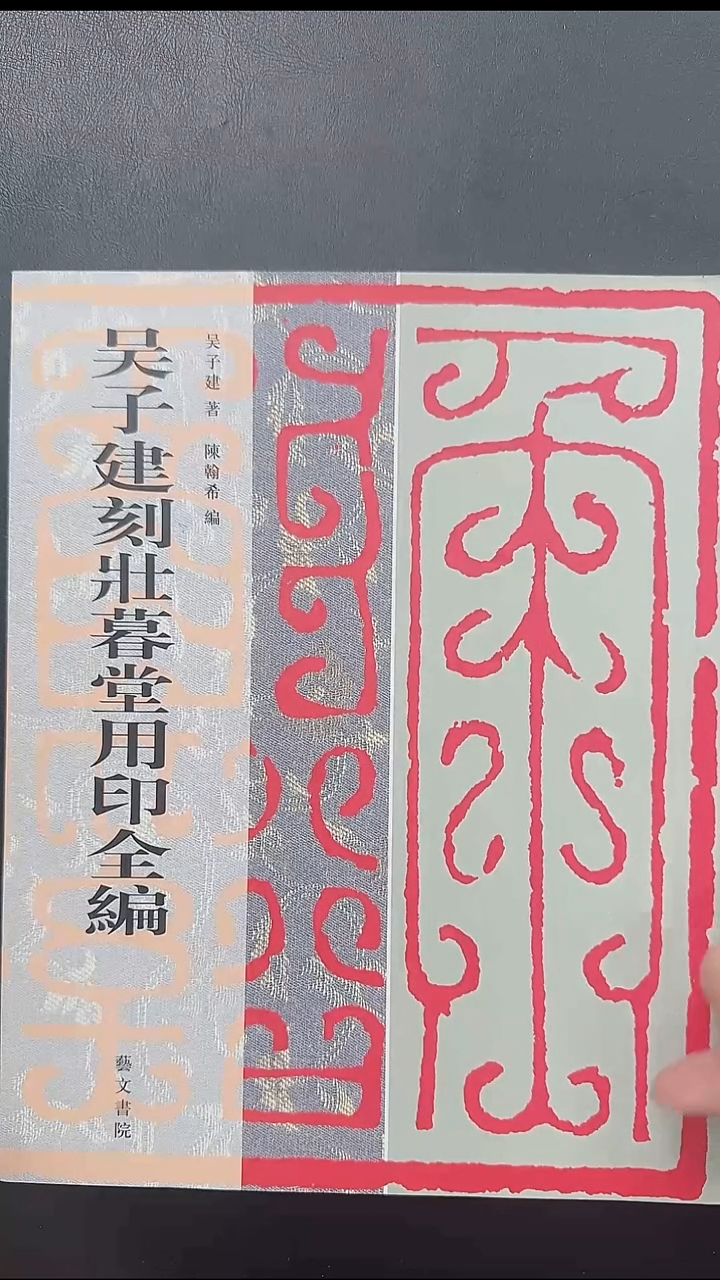 吴子建刻壯暮堂用印全編
吴子建 著 陳翰希 編
藝文書院